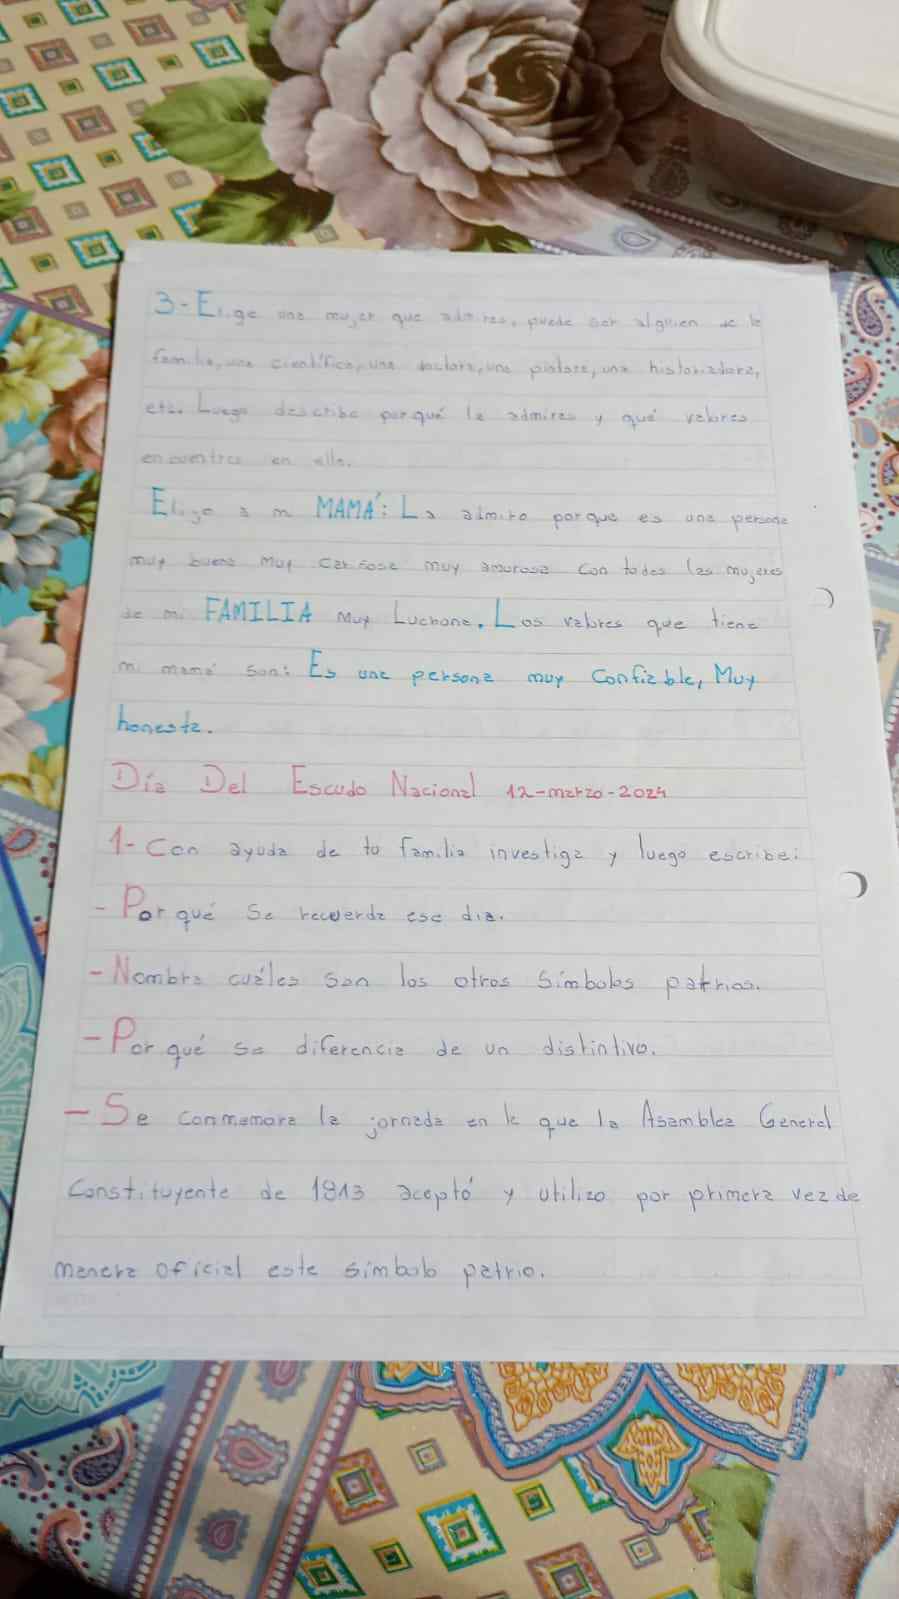 3-Elige una mujer que admires, puede ser alguien de la
familia, una científica, una doctora, una pintora, una historiadora,
etc. Luego describe porqué la admiras y qué valores
encuentras en ella.
Elijo a mi MAMÁ: La admiro porque es una persona
muy buena muy cariñosa muy amorosa con todas las mujeres
de mi FAMILIA Muy Luchona. Los valores que tiene
mi mamá son: Es una persona muy Confiable, Muy
honesta.
Día Del Escudo Nacional 12-marzo-2024
1- Con ayuda de tu familia investiga y luego escribe:
- Por qué se recuerda ese día.
- Nombra cuáles son los otros símbolos patrios.
- Por qué se diferencia de un distintivo.
- Se conmemora la jornada en la que la Asamblea General
Constituyente de 1813 aceptó y utilizo por primera vez de
manera oficial este símbolo patrio.